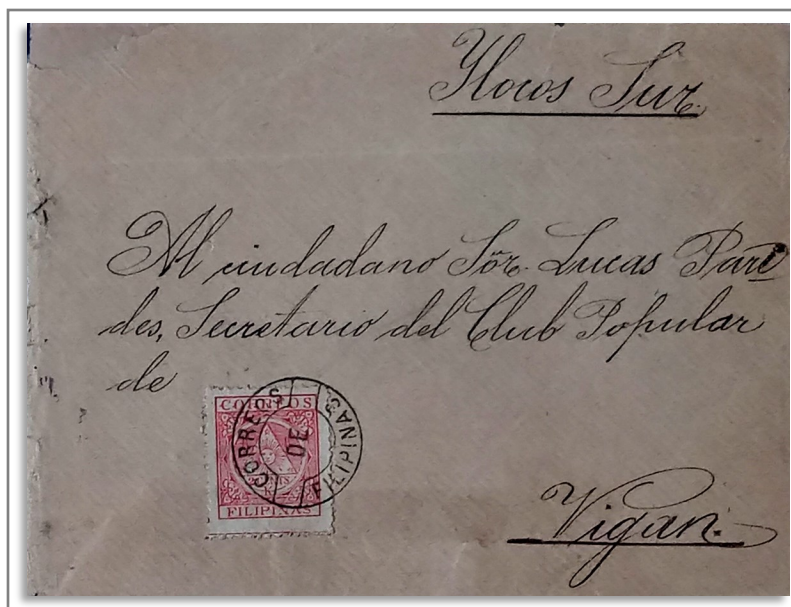 Ylocos Sur.
Al ciudadano Sör. Lucas Pare
des, Secretario del Club Popular
de
CORREOS
FILIPINAS
CORREOS
DE
FILIPINAS
Vigan.